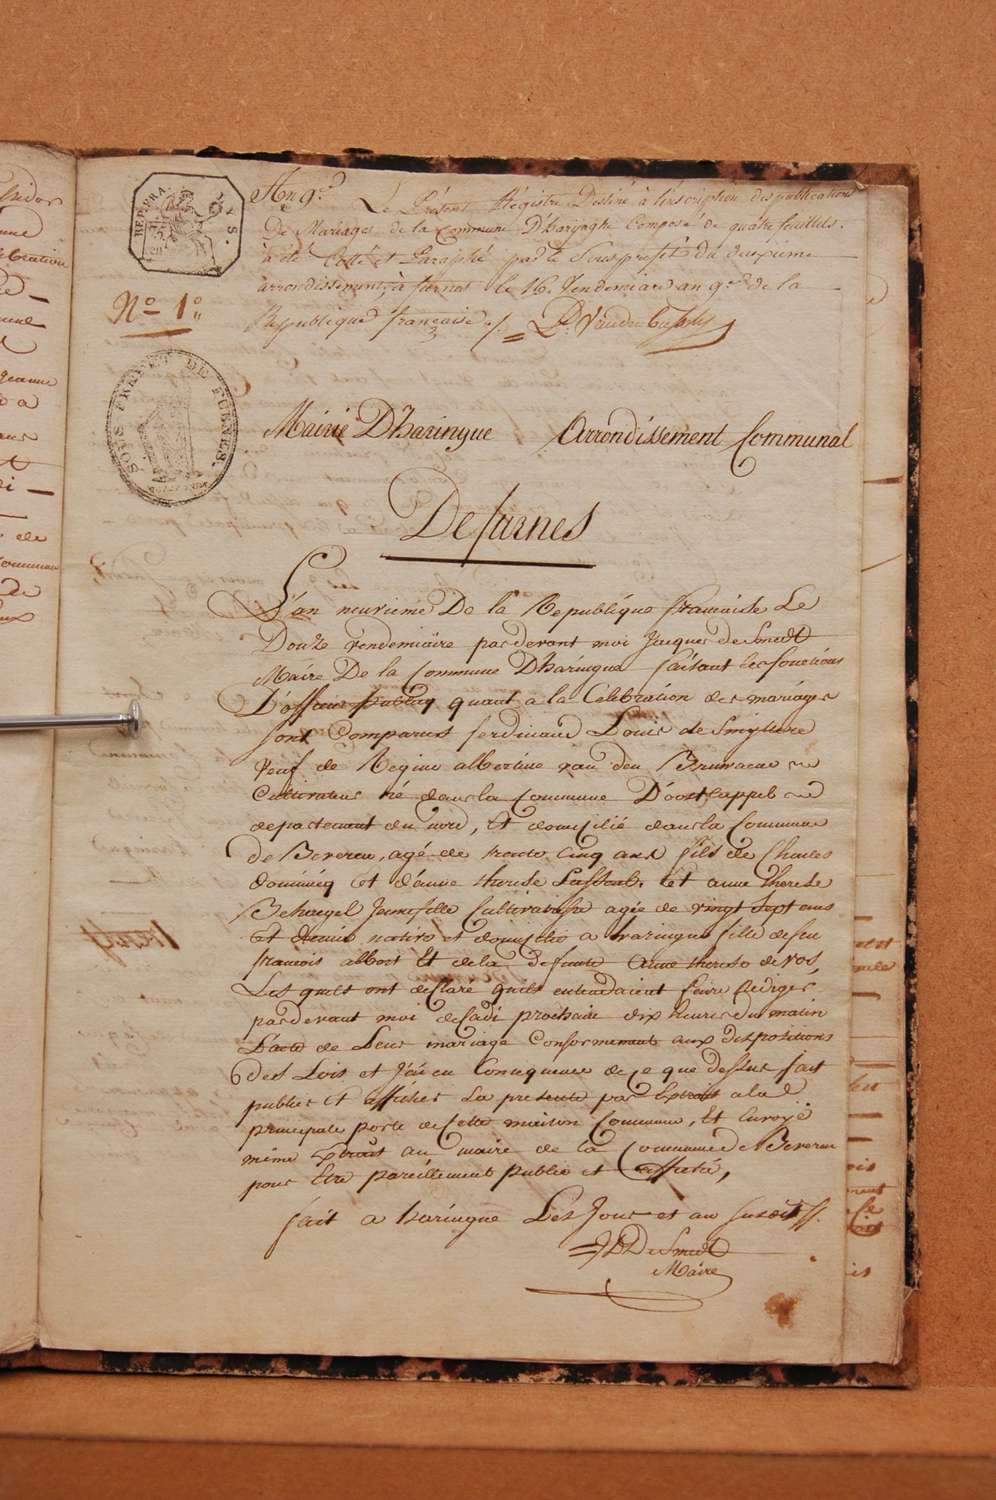 REP. FRA.
75
S.
An 9.e Le Présent Régistre Destiné à l'inscription des publications
De Mariages de la Commune D'harynghe Composé de quatre feuillets.
à été Cotté et Paraphé par le Sousprefet du deuxième
arrondissement, à furnes le 16. Vendemiaire an 9.e de la
République française ./.
No. 1o.
SOUS PREFET DE FURNES.
Mairie D'haringue Arrondissement Communal
De furnes
L'an neuvieme De la Republique francaise Le
Douze vendemiaire pardevant moi Jacques de Smedt
Maire De la Commune D'haringue faisant les fonctions
D'officier publiq quant a la Celebration des mariages
sont Comparus ferdinand Louis de Smyttere
veuf de Regine albertine van den Brunacae
Cultivateur né dans la Commune D'oostcappel
departement du nord, et domicilié dans la Commune
de Beveren, agé de trente cinq ans fils de Charles
dominiq et d'anne therese et anne therese
Behaegel Jeunefille Cultivatrice agée de vingt sept ans
et demie native et domicilié a haringue fille de feu
francois albert et de la defunte anne therese de vos,
Les quels ont declaré quils entendaient faire rediger
pardevant moi decadi prochain dix heures du matin
L'acte de Leur mariage Conformement aux dispositions
des Lois et J'ai en Consequence de ce que dessus fait
publier et afficher La presente par Extrait a la
principale porte de Cette maison Commune, et Envoyé
même Extrait au maire de la Commune de Beveren
pour Etre pareillement publié et affiché,
fait a haringue Les Jour et an susdit
JD De Smedt
Maire